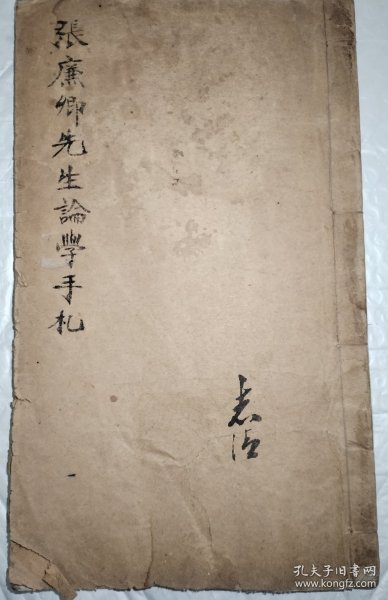 張廉卿先生論學手札
孔夫子旧书网
www.kongfz.com